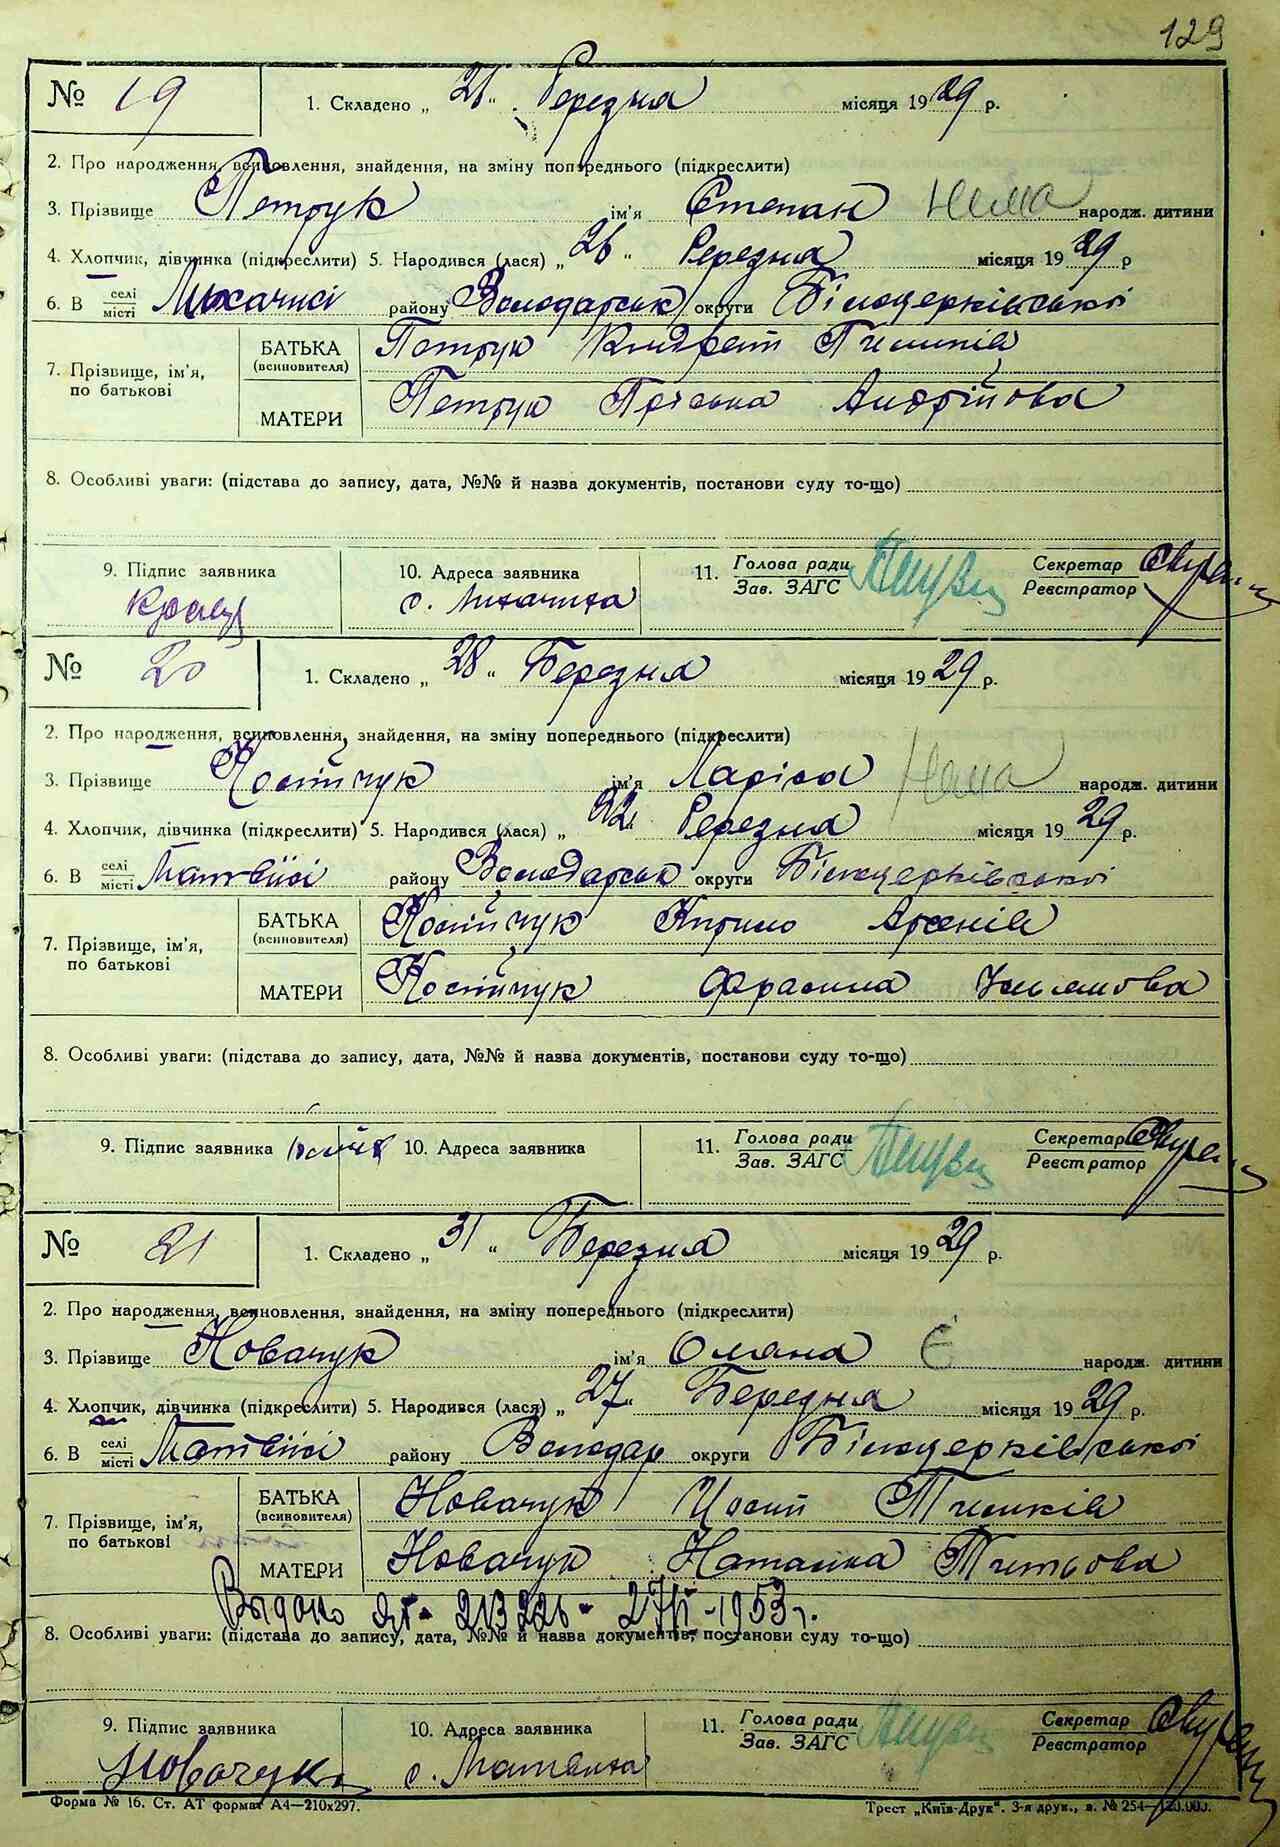 129
№ 19 1. Складено „ 28 “ Березня місяця 1929 р.
2. Про народження, всиновлення, знайдення, на зміну попереднього (підкреслити)
3. Прізвище Петрук ім'я Степан Нема народж. дитини
4. Хлопчик, дівчинка (підкреслити) 5. Народився (лася) „ 26 “ Березня місяця 1929 р
6. В селі місті району Володарськ округи Білоцерківської
7. Прізвище, ім'я, по батькові БАТЬКА (всиновителя) Петрук Кындрат Пилипів
МАТЕРИ Петрук Андрійова
8. Особливі уваги: (підстава до запису, дата, №№ й назва документів, постанови суду то-що)
9. Підпис заявника 10. Адреса заявника 11. Голова ради Зав. ЗАГС Секретар Реєстратор
с. Лихачиха
№ 20 1. Складено „ 28 “ Березня місяця 1929 р.
2. Про народження, всиновлення, знайдення, на зміну попереднього (підкреслити)
3. Прізвище Костійчук ім'я Лариса Нема народж. дитини
4. Хлопчик, дівчинка (підкреслити) 5. Народився (лася) „ 22 “ Березня місяця 1929 р.
6. В селі місті Матвіїсі району Володарськ округи Білоцерківської
7. Прізвище, ім'я, по батькові БАТЬКА (всиновителя) Костійчук Кирило Арсенів
МАТЕРИ Костійчук Фрасина Ульянова
8. Особливі уваги: (підстава до запису, дата, №№ й назва документів, постанови суду то-що)
9. Підпис заявника 10. Адреса заявника 11. Голова ради Зав. ЗАГС Секретар Реєстратор
№ 21 1. Складено „ 31 “ Березня місяця 1929 р.
2. Про народження, всиновлення, знайдення, на зміну попереднього (підкреслити)
3. Прізвище Новачук ім'я Оляна Є народж. дитини
4. Хлопчик, дівчинка (підкреслити) 5. Народився (лася) „ 27 “ Березня місяця 1929 р.
6. В селі місті Матвіїсі району Володар округи Білоцерківської
7. Прізвище, ім'я, по батькові БАТЬКА (всиновителя) Новачук Йосип Тимків
МАТЕРИ Новачук Наталка Титьова
Выдано 27/VI-1953г.
8. Особливі уваги: (підстава до запису, дата, №№ й назва документів, постанови суду то-що)
9. Підпис заявника 10. Адреса заявника 11. Голова ради Зав. ЗАГС Секретар Реєстратор
Новачук с. Матвиха
Форма № 16. Ст. АТ формат А4—210х297. Трест „Київ-Друк“. 3-я друк., в. № 254—120.000.